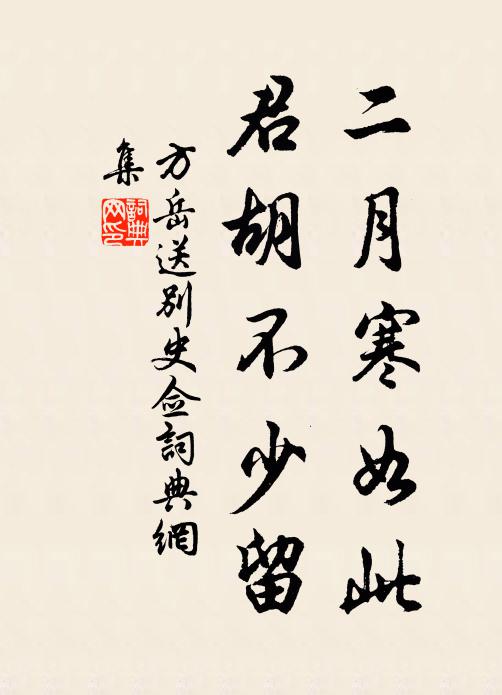 二月寒如此
君胡不少留
方岳送别史佥詞典網
集
詞典
网印